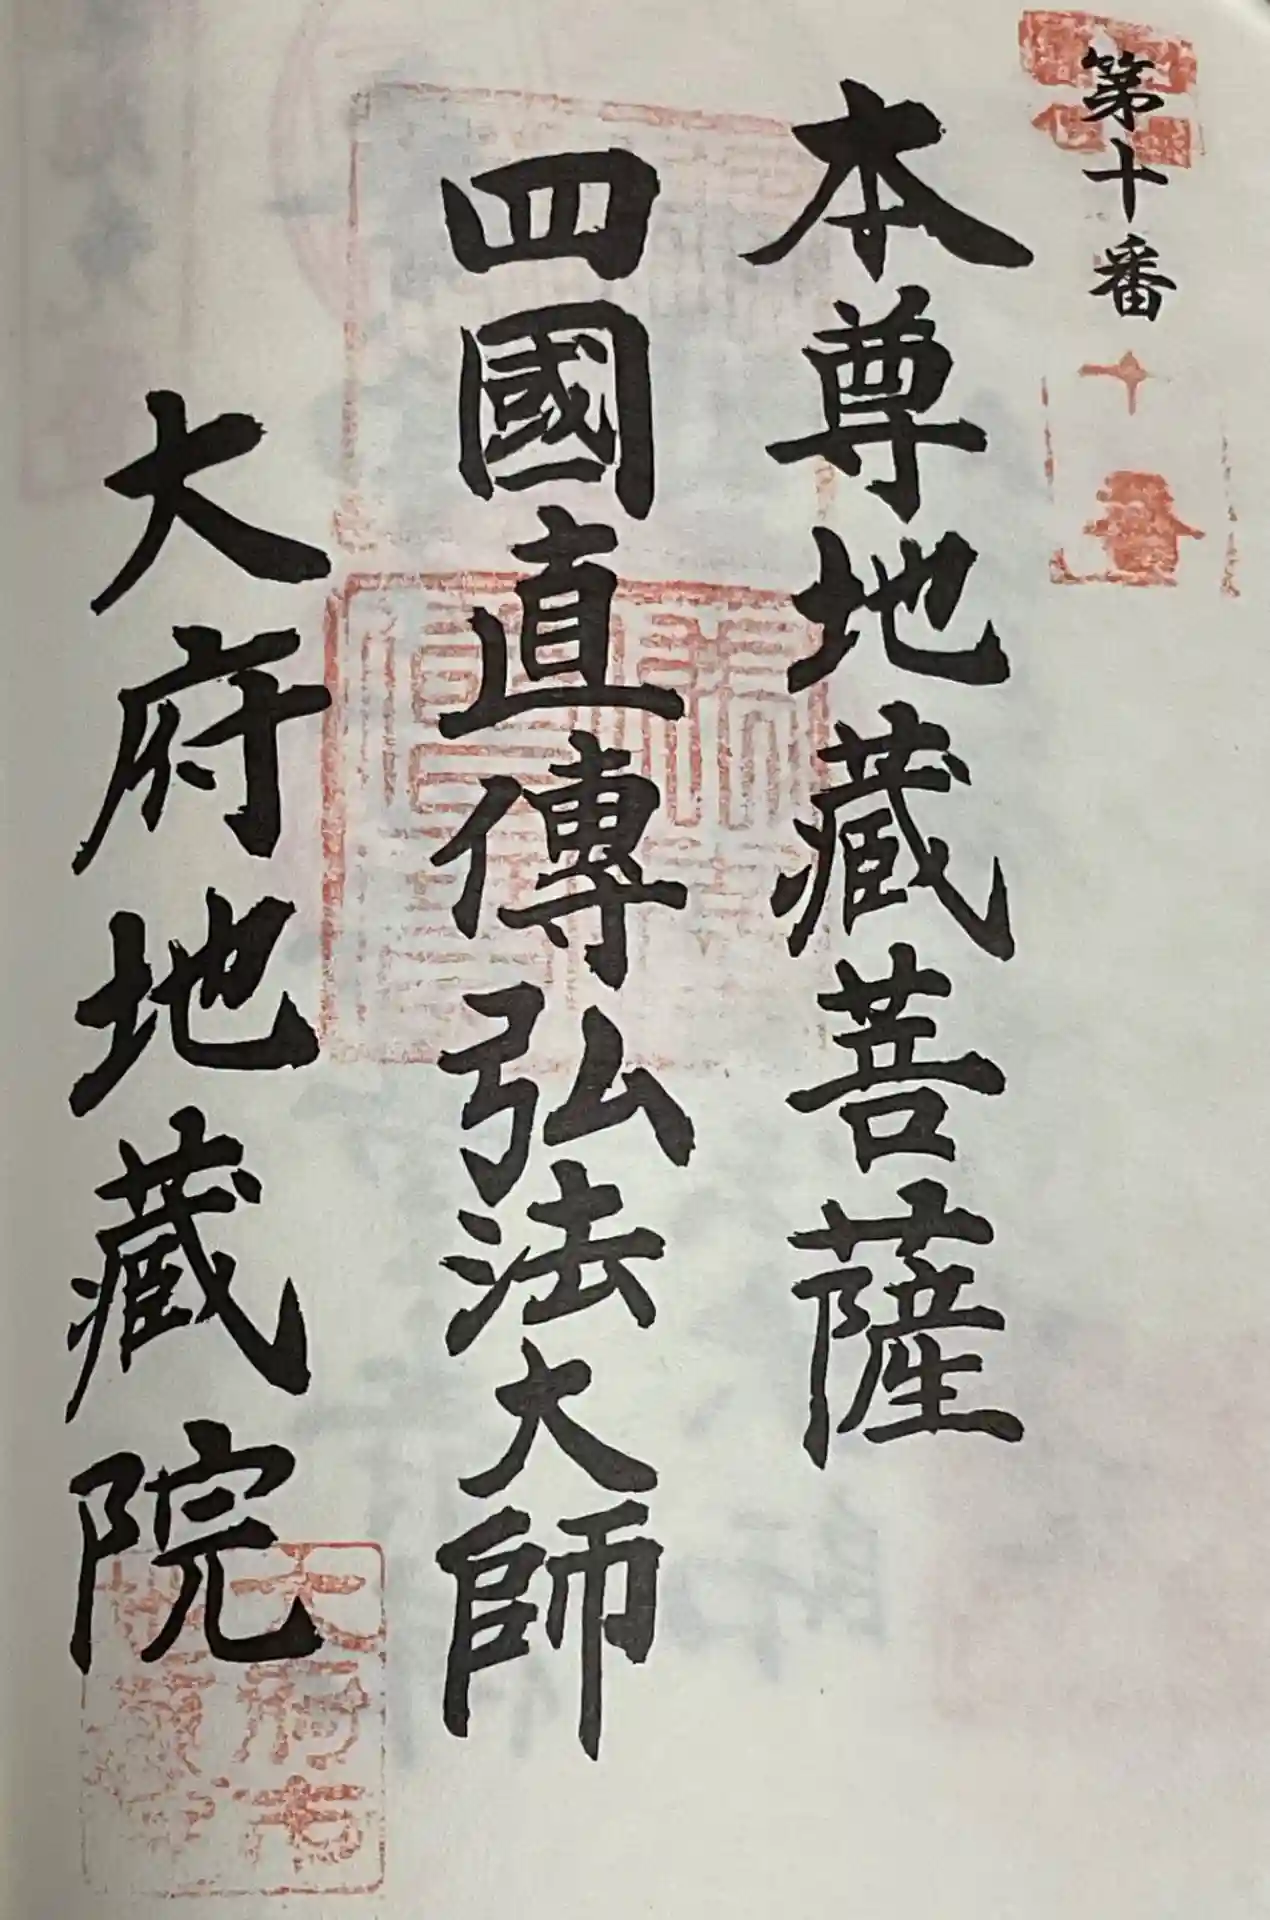 第十番
十番
本尊地藏菩薩
四國直傳弘法大師
大府地藏院